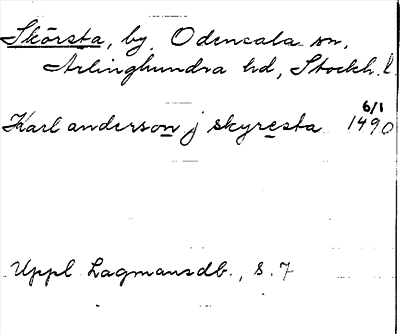 Skörsta, by. Odensala sn,
Arlinghundra hd, Stockh. l.
6/1
Karl anderson j skyresta 1490
Uppl Lagmansdb., s. 7